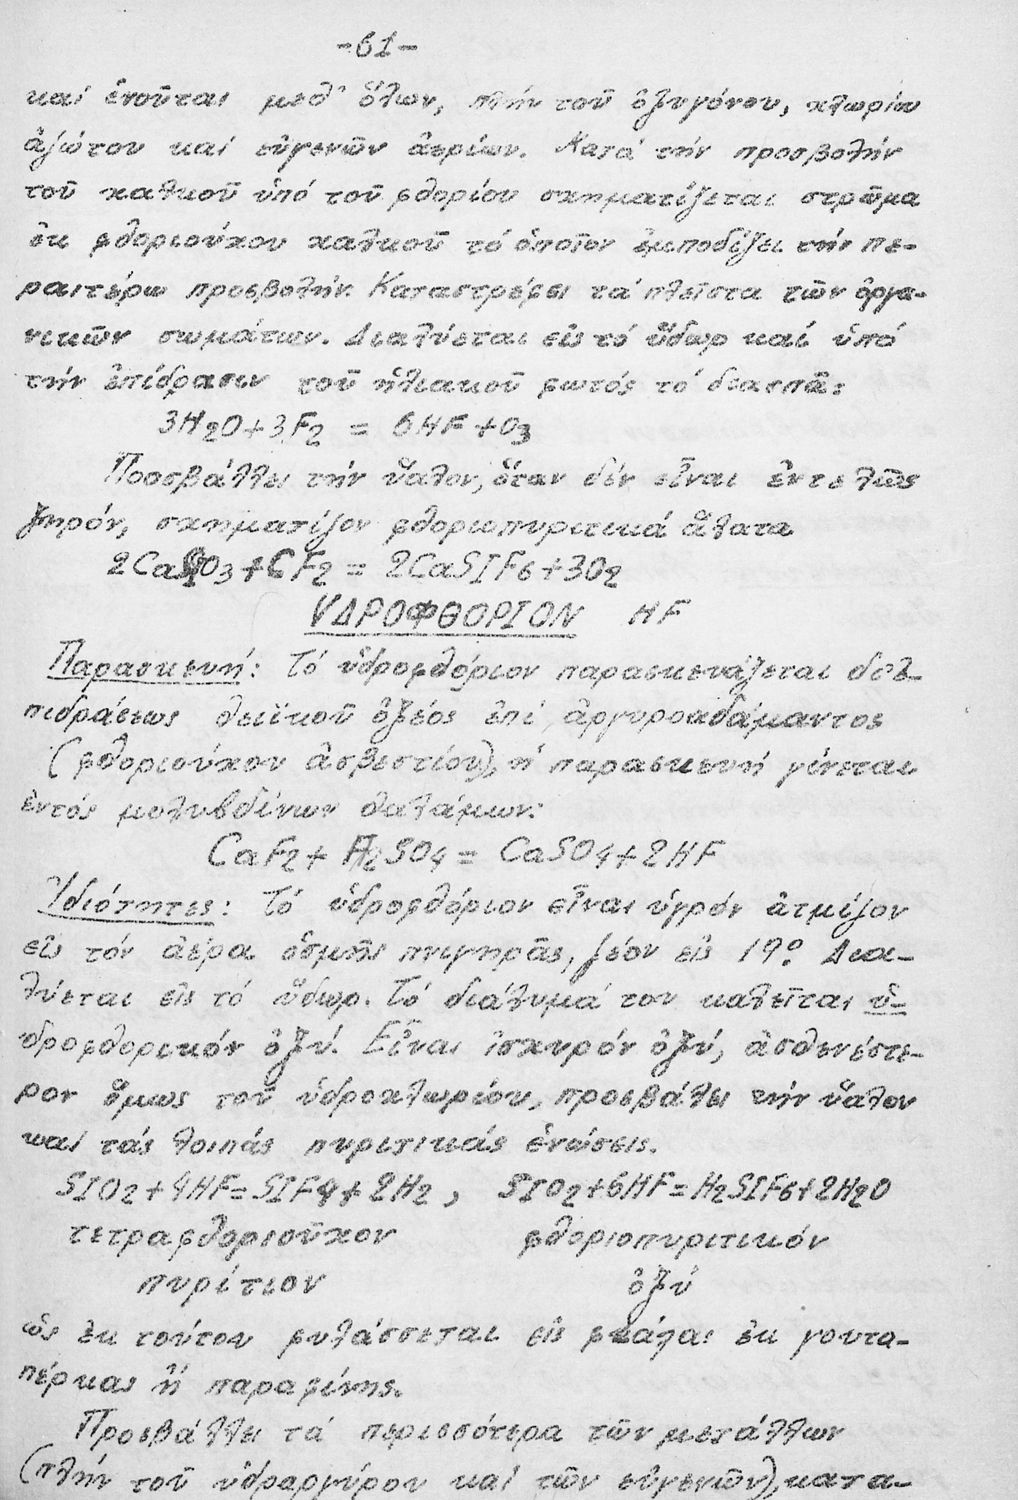 -61-
καί ἑνοῦται μεθ' ὅλων, πλήν τοῦ ὀξυγόνου, χλωρίου
ἀζώτου καί εὐγενῶν ἀερίων. Κατά τήν προσβολήν
τοῦ χαλκοῦ ὑπό τοῦ φθορίου σχηματίζεται στρῶμα
ἐκ φθοριούχου χαλκοῦ τό ὁποῖον ἐμποδίζει τήν πε-
ραιτέρω προσβολήν. Καταστρέφει τά πλεῖστα τῶν ὀργα-
νικῶν σωμάτων. Διαλύεται εἰς τό ὕδωρ καί ὑπό
τήν ἐπίδρασιν τοῦ ἡλιακοῦ φωτός τό διασπᾶ:
3H2O+3F2 = 6HF+O3
Προσβάλλει τήν ὕαλον, ὅταν δέν εἶναι ἐντελῶς
ξηρόν, σχηματίζον φθοριοπυριτικά ἅλατα
2CaSIO3+6F2 = 2CaSIF6+3O2
ΥΔΡΟΦΘΟΡΙΟΝ HF
Παρασκευή: Τό ὑδροφθόριον παρασκευάζεται δι'ἐ-
πιδράσεως θειϊκοῦ ὀξέος ἐπί ἀργυροαδάμαντος
(φθοριούχου ἀσβεστίου), ἡ παρασκευή γίνεται
ἐντός μολυβδίνων θαλάμων:
CaF2+H2SO4 = CaSO4+2HF
Ἰδιότητες: Τό ὑδροφθόριον εἶναι ὑγρόν ἀτμίζον
εἰς τόν ἀέρα ὀσμῆς πνιγηρᾶς, ζέον εἰς 19° Δια-
λύεται εἰς τό ὕδωρ. Τό διάλυμά του καλεῖται ὑ-
δροφθορικόν ὀξύ. Εἶναι ἰσχυρόν ὀξύ, ἀσθενέστε-
ρον ὅμως τοῦ ὑδροχλωρίου, προσβάλει τήν ὕαλον
καί τάς λοιπάς πυριτικάς ἑνώσεις.
SIO2+4HF=SIF4+2H2, SIO2+6HF=H2SIF6+2H2O
τετραφθοριοῦχον φθοριοπυριτικόν
πυρίτιον ὀξύ
ὡς ἐκ τούτου φυλάσσεται εἰς φιάλας ἐκ γουτα-
πέρκας ἤ παραφίνης.
Προσβάλλει τά περισσότερα τῶν μετάλλων
(πλήν τοῦ ὑδραργύρου καί τῶν εὐγενῶν), κατα-